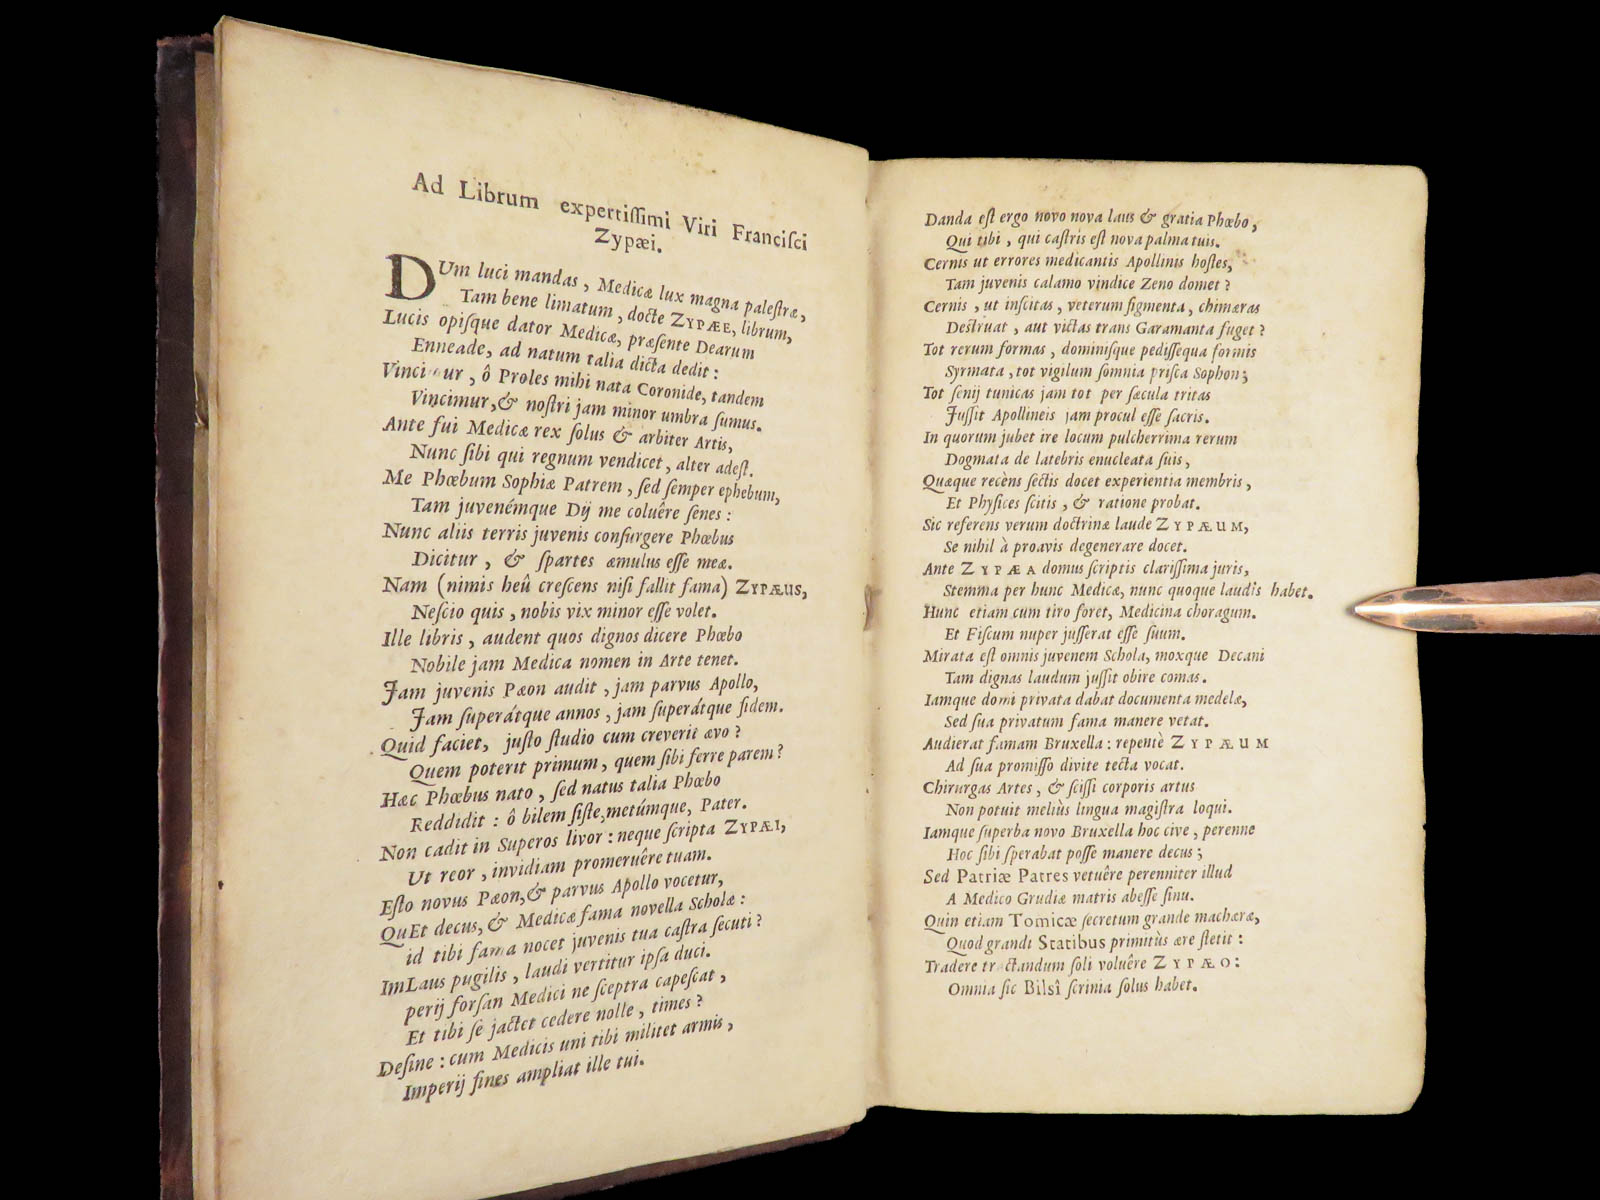 Ad Librum expertiſſimi Viri Franciſci
Zypæi.
DUm luci mandas, Medicæ lux magna palæſtræ,
Tam bene limatum, docte ZYPÆE, librum,
Lucis opiſque dator Medicæ, præſente Dearum
Enneade, ad natum talia dicta dedit:
ur, ô Proles mihi nata Coronide, tandem
Vincimur, & noſtri jam minor umbra ſumus.
Ante fui Medicæ rex ſolus & arbiter Artis,
Nunc ſibi qui regnum vendicet, alter adeſt.
Me Phœbum Sophiæ Patrem, ſed ſemper ephebum,
Tam juvenémque Dij me coluêre ſenes:
Nunc aliis terris juvenis conſurgere Phœbus
Dicitur, & ſpartes æmulus eſſe meæ.
Nam (nimis heû creſcens niſi fallit fama) ZYPÆUS,
Neſcio quis, nobis vix minor eſſe volet.
Ille libris, audent quos dignos dicere Phœbo
Nobile jam Medica nomen in Arte tenet.
Jam juvenis Pæon audit, jam parvus Apollo,
Jam ſuperátque annos, jam ſuperátque fidem.
Quid faciet, juſto ſtudio cum creverit ævo?
Quem poterit primum, quem ſibi ferre parem?
Hæc Phœbus nato, ſed natus talia Phœbo
Reddidit: ô bilem ſiſte, metúmque, Pater.
Non cadit in Superos livor: neque ſcripta ZYPÆI,
Ut reor, invidiam promeruêre tuam.
Eſto novus Pæon, & parvus Apollo vocetur,
QuEt decus, & Medicæ fama novella Scholæ:
id tibi fama nocet juvenis tua caſtra ſecuti?
ImLaus pugilis, laudi vertitur ipſa duci.
perij forſan Medici ne ſceptra capeſcat,
Et tibi ſe jactet cedere nolle, times?
Deſine: cum Medicis uni tibi militet armis,
Imperij fines ampliat ille tui.
Danda eſt ergo novo nova laus & gratia Phœbo,
Qui tibi, qui caſtris eſt nova palma tuis.
Cernis ut errores medicantis Apollinis hoſtes,
Tam juvenis calamo vindice Zeno domet?
Cernis, ut inſcitas, veterum figmenta, chimæras
Deſtruat, aut victas trans Garamanta fuget?
Tot rerum formas, dominiſque pediſſequa formis
Syrmata, tot vigilum ſomnia priſca Sophon;
Tot ſenij tunicas jam tot per ſæcula tritas
Juſſit Apollineis jam procul eſſe ſacris.
In quorum jubet ire locum pulcherrima rerum
Dogmata de latebris enucleata ſuis,
Quæque recèns ſectis docet experientia membris,
Et Phyſices ſcitis, & ratione probat.
Sic referens verum doctrinæ laude ZYPÆUM,
Se nihil à proavis degenerare docet.
Ante ZYPÆA domus ſcriptis clariſſima juris,
Stemma per hunc Medicæ, nunc quoque laudis habet.
Hunc etiam cum tiro foret, Medicina choragum.
Et Fiſcum nuper juſſerat eſſe ſuum.
Mirata eſt omnis juvenem Schola, moxque Decani
Tam dignas laudum juſſit obire comas.
Iamque domi privata dabat documenta medelæ,
Sed ſua privatum fama manere vetat.
Audierat famam Bruxella: repentè ZYPÆUM
Ad ſua promiſſo divite tecta vocat.
Chirurgas Artes, & ſciſſi corporis artus
Non potuit meliùs lingua magiſtra loqui.
Iamque ſuperba novo Bruxella hoc cive, perenne
Hoc ſibi ſperabat poſſe manere decus;
Sed Patriæ Patres vetuêre perenniter illud
A Medico Grudiæ matris abeſſe ſinu.
Quin etiam Tomicæ ſecretum grande machæræ,
Quod grandi Statibus primitùs ære ſtetit:
Tradere tractandum ſoli voluêre ZYPÆO:
Omnia ſic Bilsî ſcrinia ſolus habet.